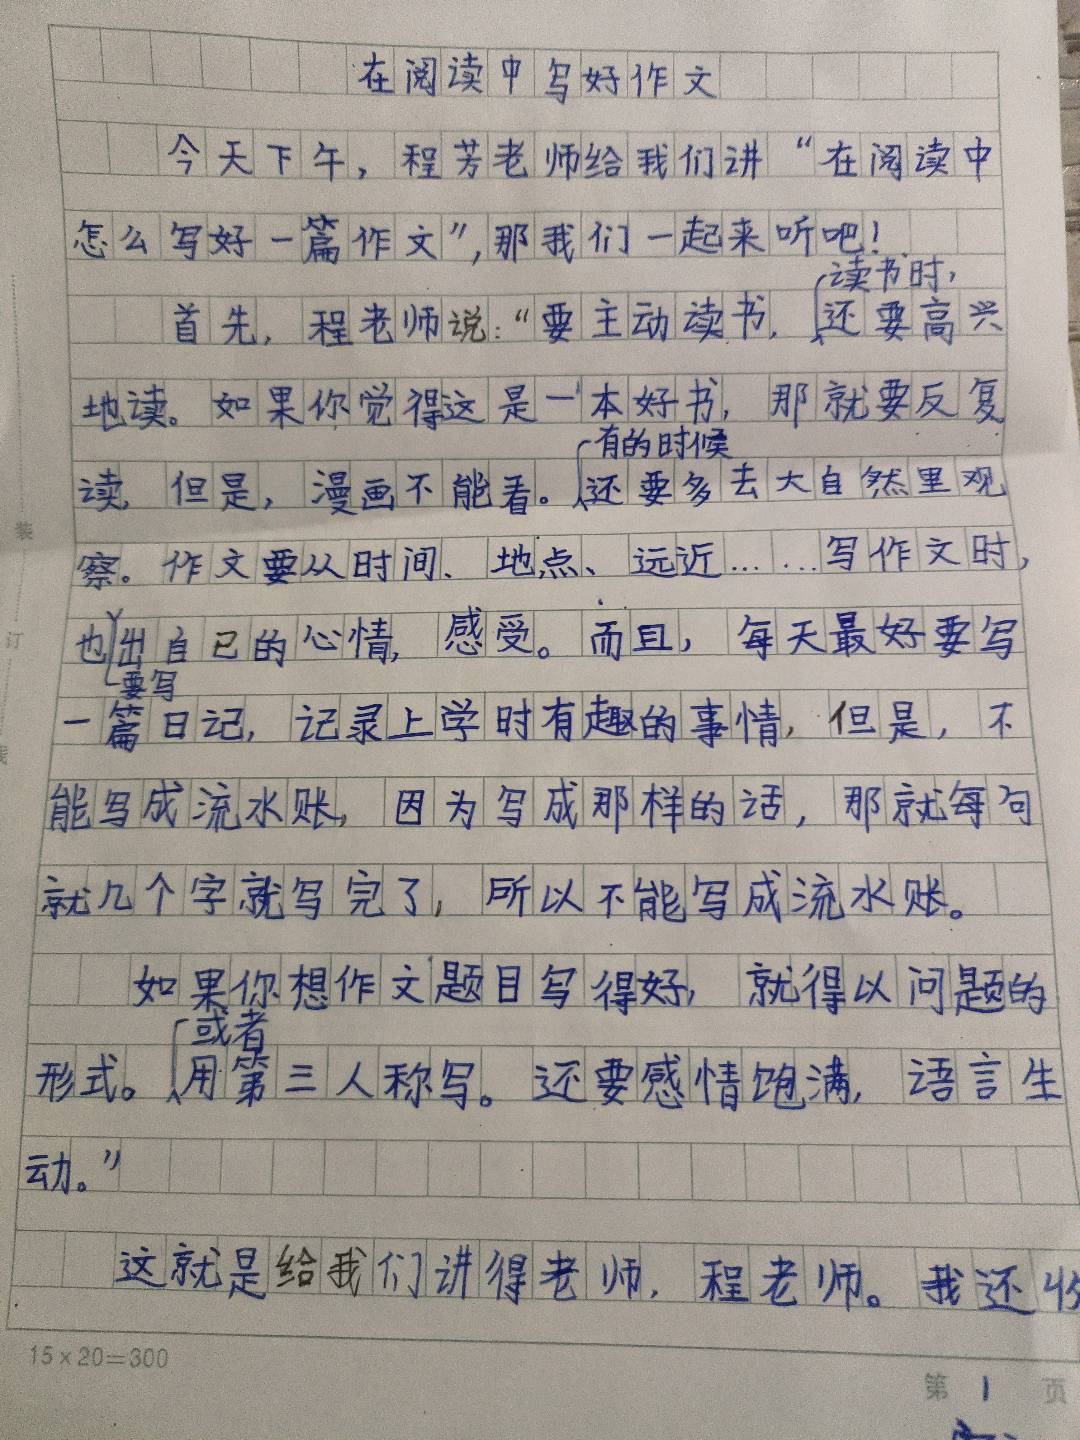 在阅读中写好作文
今天下午，程芳老师给我们讲“在阅读中
怎么写好一篇作文”，那我们一起来听吧！
读书时，
首先，程老师说：“要主动读书，还要高兴
地读。如果你觉得这是一本好书，那就要反复
有的时候
读，但是，漫画不能看。还要多去大自然里观
察。作文要从时间、地点、远近……写作文时，
也出自己的心情，感受。而且，每天最好要写
要写
一篇日记，记录上学时有趣的事情，但是，不
能写成流水账，因为写成那样的话，那就每句
就几个字就写完了，所以不能写成流水账。
如果你想作文题目写得好，就得以问题的
或者
形式。用第三人称写。还要感情饱满，语言生
动。”
这就是给我们讲得老师，程老师。我还收
15×20=300
第 1 页
装
订